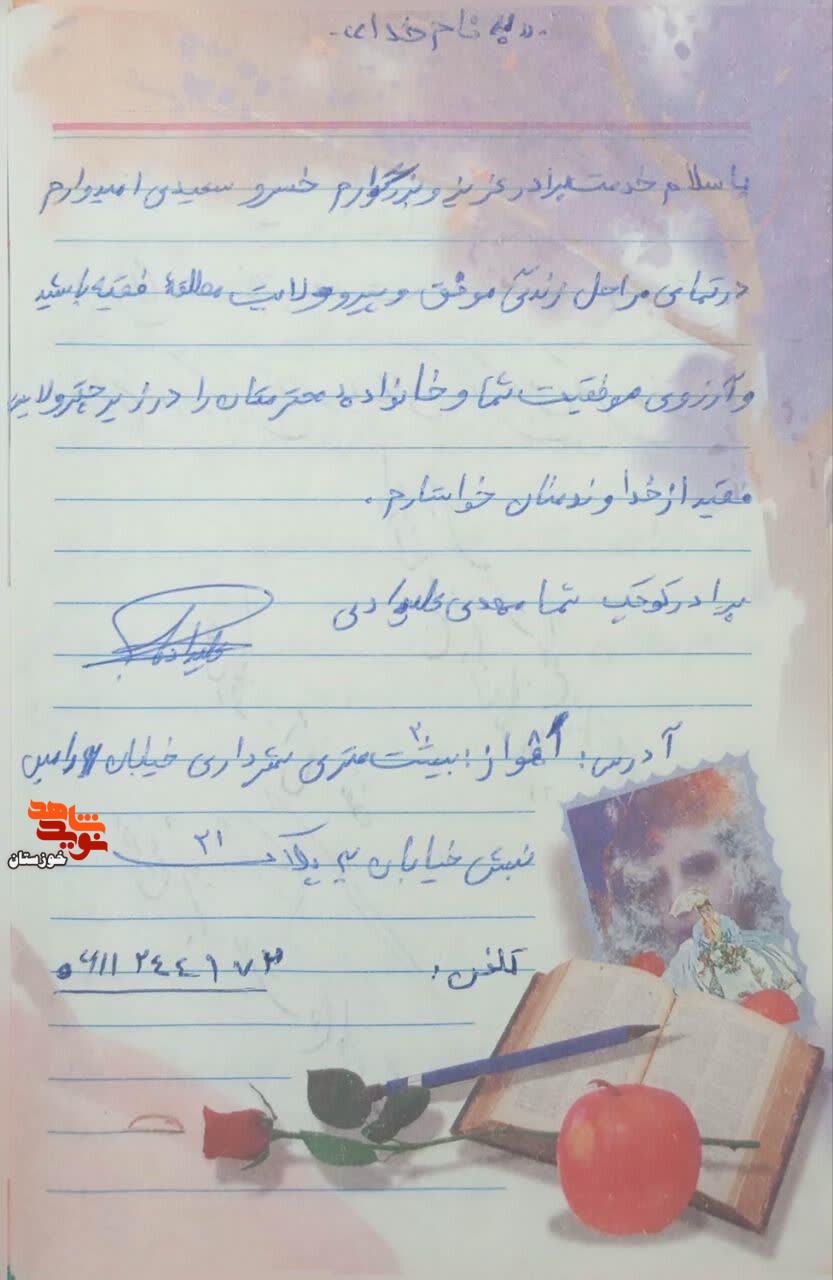 «به نام خدا»
با سلام خدمت برادر عزیز و بزرگوارم خسرو سعیدی امیدوارم
در تمامی مراحل زندگی موفق و پیرو ولایت مطلقهٔ فقیه باشید
و آرزوی موفقیت شما و خانواده محترمتان را در زیر چتر ولایت
فقیه از خداوند منان خواستارم.
برادر کوچک شما مهدی علیدادی
علیدادی
آدرس: اهواز: بیست متری شهرداری خیابان رامین
۲۰
نبش خیابان ۳ پلاک ۲۱
تلفن: ۰۶۱۱۲۴۴۹۷۳
نوید شاهد
خوزستان